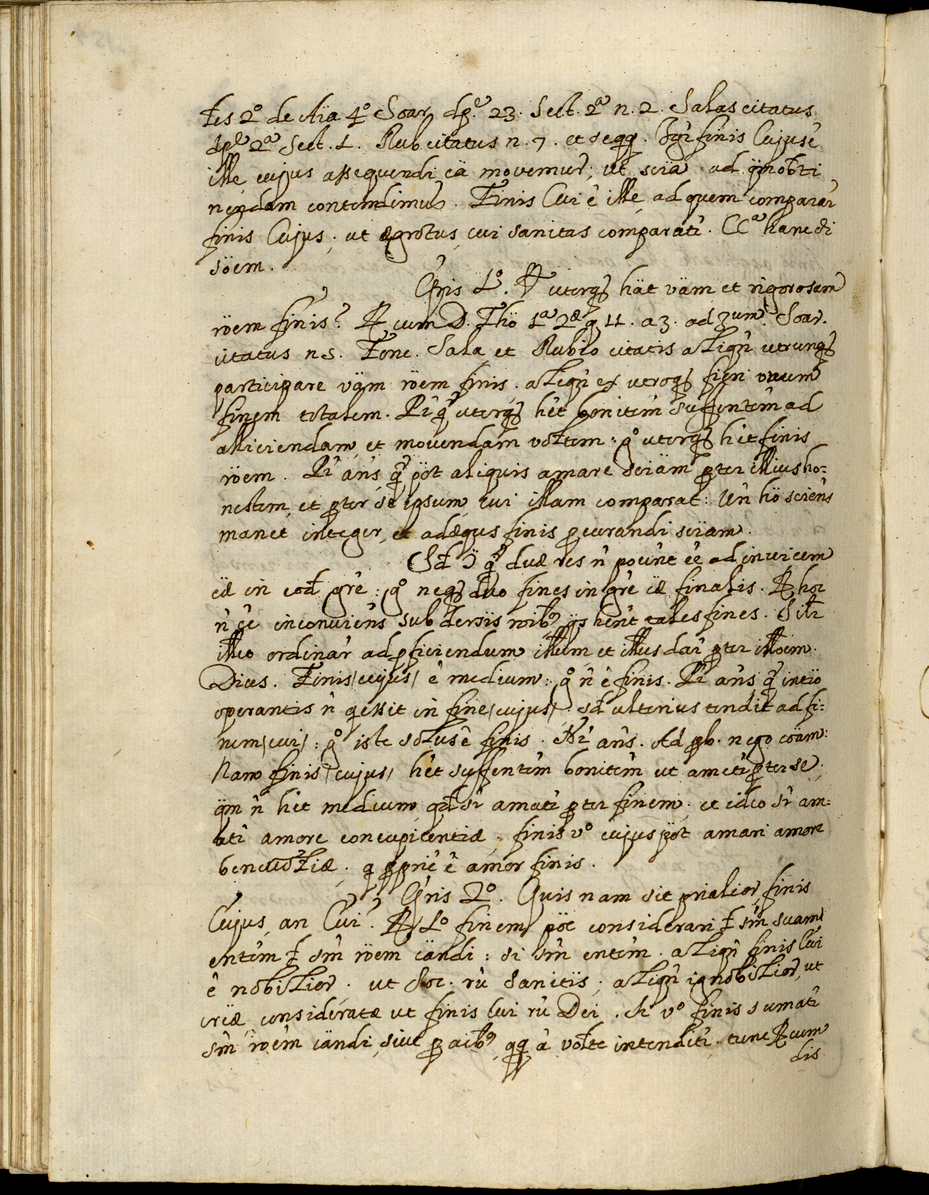 tes 2º de Aïa 4º Soar. dpe 23. Sect. 2ª n. 2. Salas citatus
dpe 2ª Sect. 1. Rub citatus n. 7. et seqq. Igr̃ finis Cujus ẽ
ille cujus assequendi cä movemur̃, ut scia ad qm̃ obti
nendam contendimus. Finis Cui ẽ ille, ad quem comparar̃
finis Cujus, ut ægrotus cui sanitas comparatr̃. CCª hanc di
söem.
Qris 1º. An utq̃ hät väm et rigorosam
röem finis? R cum D. Tho 1ª 2æ q 11. a 3. ad 3um. Soar.
citatus n 5. Fonc. Sala et Rubio citatis aliqñ utrunq̃
participare väm röem finis. aliqñ ex utroq̃ fieri unum
finem totalem. Pr̃ qã uterq̃ hẽt bonitem̃ suffentem̃ ad
alliciendam, et movendam voltem: gº uterq̃ hẽt finis
röem. Pr̃ añs qã pöt aliquis amare sciäm pter illius ho-
nestem, et pter se ipsum, cui illam comparat: Uñ hö sciens
manet integer, et adæqus finis procurandi sciiam.
Sed ↄ̃ qã duæ res ñ pouñt ẽe ad invicem
cä in eod̃ gr̃e: gº neq̃ duo fines in gr̃e cæ finalis. R hoc
ñ ẽe inconviens̃ sub dersiis roib, ijs heñt tales fines. Sitr̃
illeo ordinar̃ ad pficiendum illelm et illeus dar̃ pter illoem.
Dices. Finis/cujus/ ẽ medium: gº ñ ẽ finis. Pr̃ añs qã intïo
operantis ñ qessit in fine/cujus/ sd ulterius tendit ad fi-
nem/cui/: gº iste solus ẽ finis. Nr̃ añs. Ad pb. nego cöam:
Nam finis/cujus/ hẽt suffentem̃ bonitem̃ ut ametr̃ pter se.
qm̃ ñ hẽt medium, qd̃ sr̃ amatr̃ pter finem. et ideo sr̃ am-
atr̃ amore concupicentiæ. finis vº cujus pöt amari amore
benevoliæ. q pprie ẽ amor finis.
Qris 2º. Quis nam sit prialior finis
Cujus, an Cui? R 1º finem pöe considerari t sm̃ suam
entem̃ t sm̃ röem cändi: si sm̃ entem̃. aliqñ finis Cui
ẽ nobilior. ut Soc. rũ Sanitis; aliqñ ignobilior, ut
criæ, consideratæ ut finis cui rũ Dei. Si vº finis sumatr̃
sm̃ röem cändi, sive p aib, qq̃ à volte intenditr̃. tunc R cum
dis